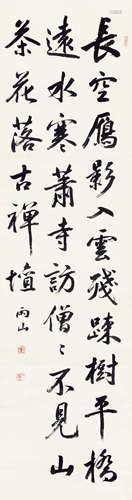 長空鴈影入雲殘疎樹平橋
遠水寒蕭寺訪僧〻不見山
茶花落古禅壇雨山